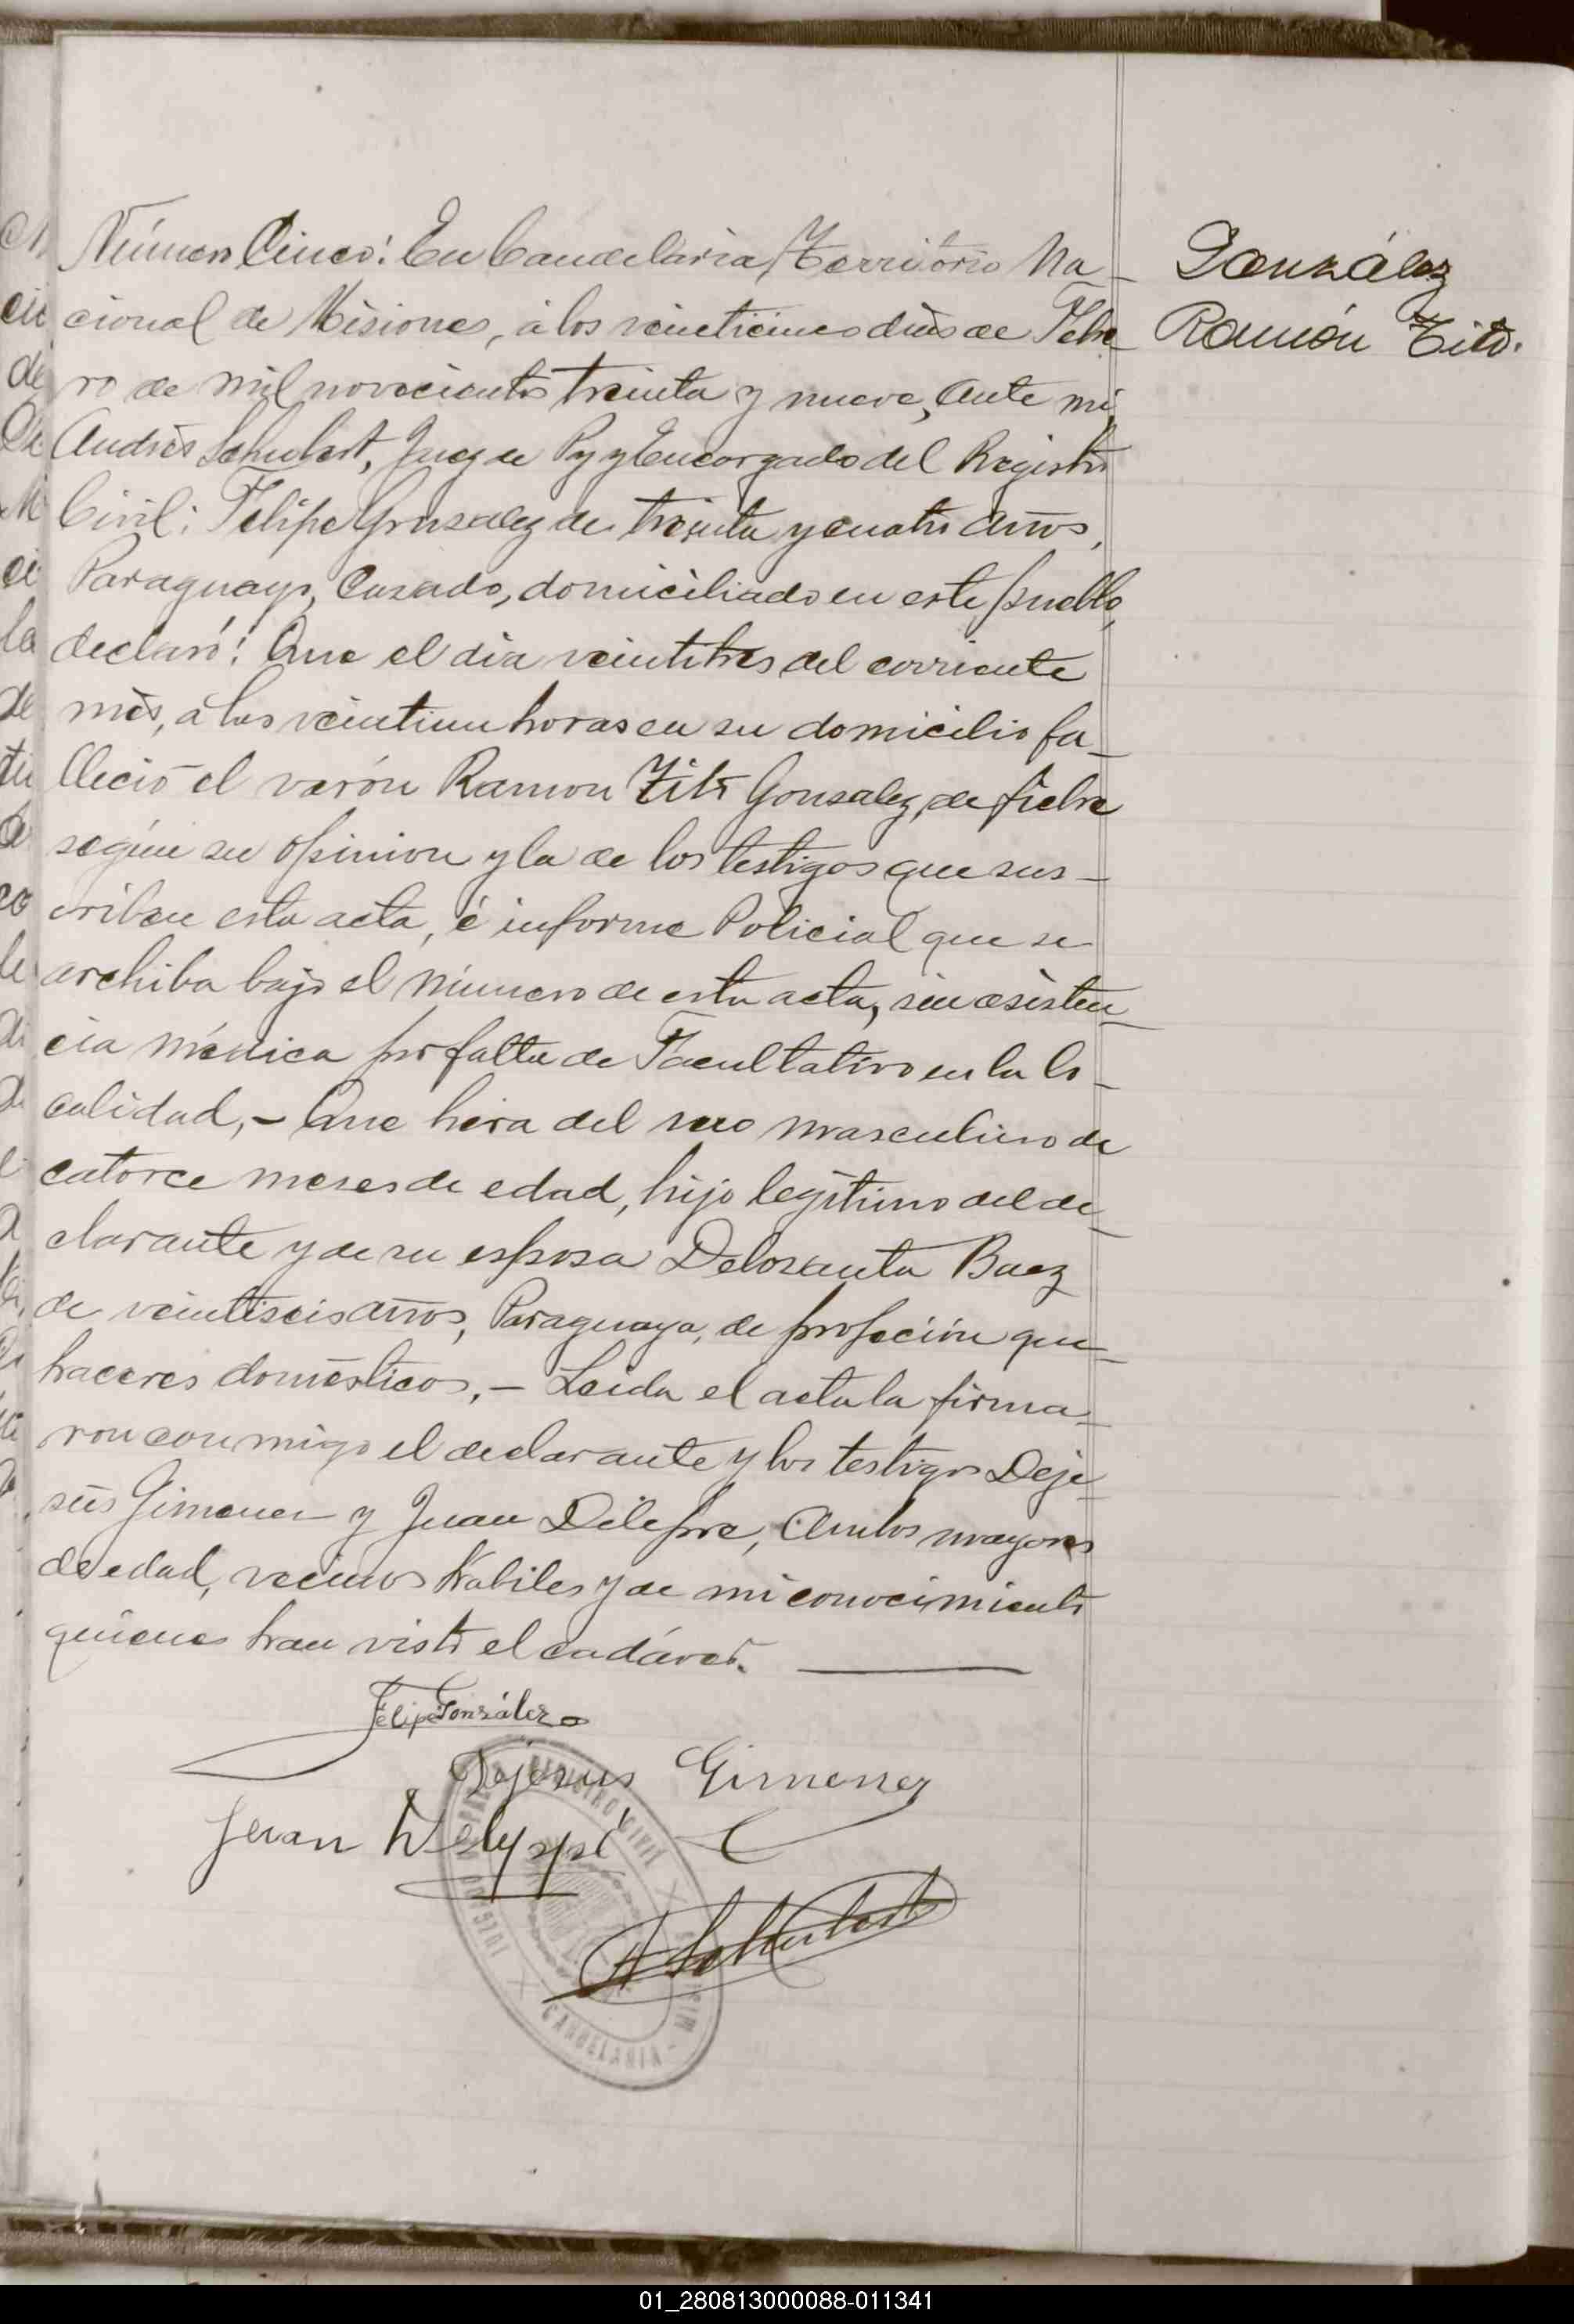 González
Ramón Tito.
Número Cinco: En Candelaria, Territorio Na-
cional de Misiones, á los veinticinco dias de Febre-
ro de mil novecientos treinta y nueve, Ante mi,
Andrés Schubert, Juez de Paz y Encargado del Registro
Civil: Felipe Gonzalez de treinta y cuatro años,
Paraguayo, Casado, domiciliado en este pueblo,
declaró: Que el dia veintitres del corriente
més, á las veintiun horas en su domicilio fa-
lleció el varón Ramon Tito Gonsalez, de fiebre
según su opinion y la de los testigos que sus-
criben esta acta, é informe Policial que se
archiba bajo el número de esta acta, sin asisten-
cia médica por falta de Facultativo en la lo-
calidad,- Que hera del sexo masculino de
catorce meses de edad, hijo legítimo del de-
clarante y de su esposa Delosanta Baez
de veintiseis años, Paraguaya, de profeción que-
haceres domésticos,- Leida el acta la firma-
ron conmigo el declarante y los testigos Deje-
sús Gimenez y Juan Delepre, Ambos mayores
de edad, vecinos habiles y de mi conocimiento
quienes han visto el cadáver.
Felipe González
Dejesus Gimenez
Juan
A Schubert
REGISTRO CIVIL
CANDELARIA
01_280813000088-011341